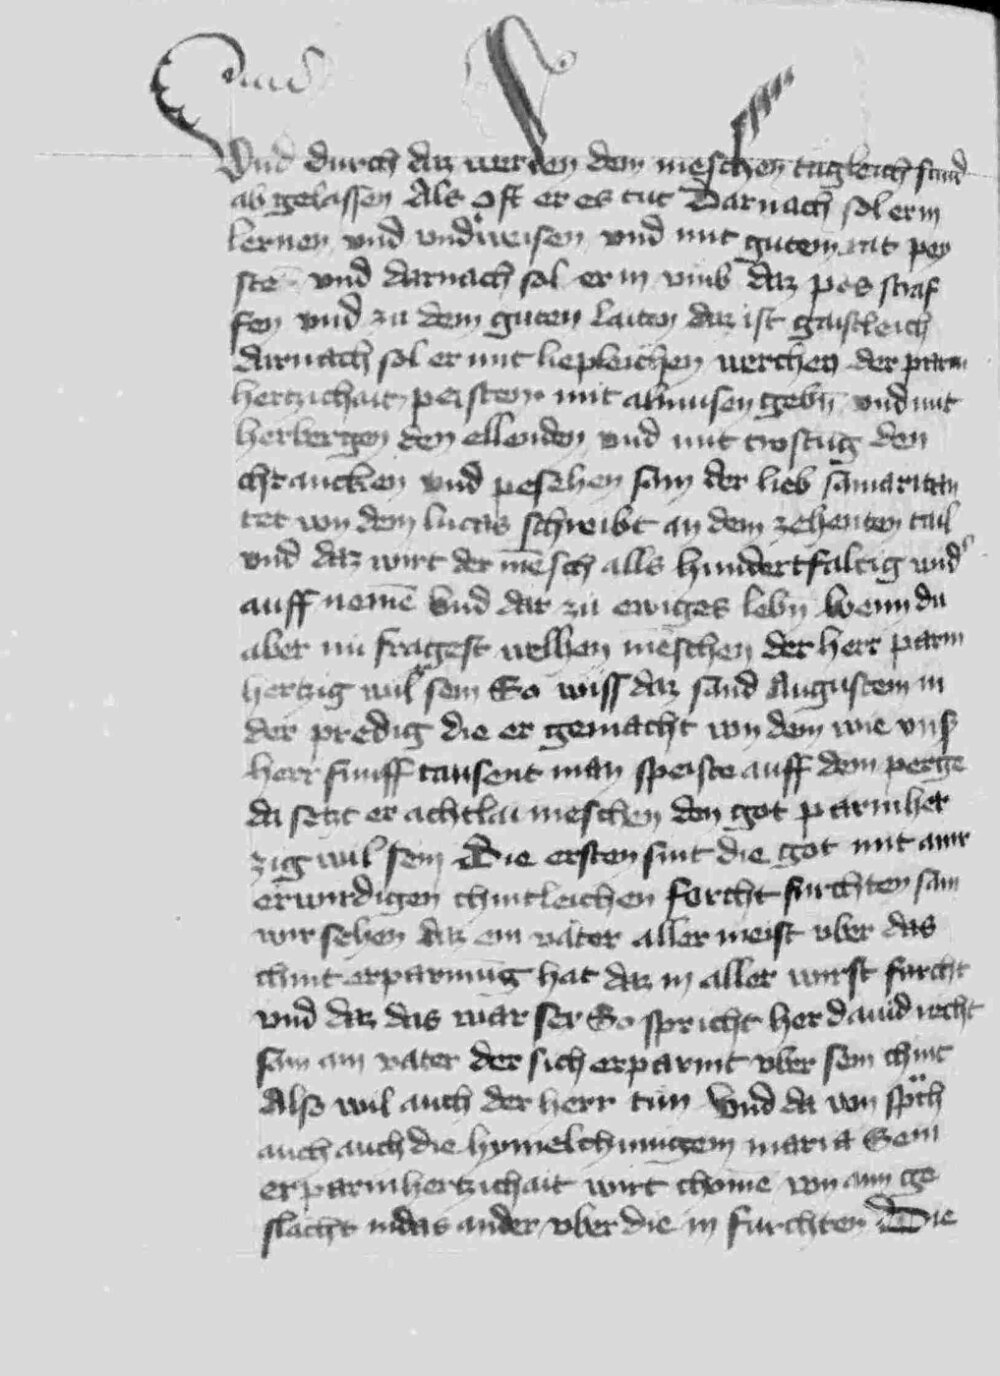 Vnd
Vnd durch daz werden dem meschen tägleich sünd
ab gelassen Als oft er es tut Darnach sol er in
lernen vnd vnderweisen vnd mit gutem rat pey
sten vnd darnach sol er in vmb daz pös straf
fen vnd zu dem guten laiten daz ist gaistleich
darnach sol er mit liepleichen werchen der parm
hertzichait peisten mit almusen gebn vnd mit
herbergen den ellenden vnd mit trostug den
chrancken vnd pesehen sam der lieb samaritan
tet von dem lucas schreibt an dem zehenten tail
vnd daz wirt der mēsch alls hundertfaltig wider
auff nemē Vnd dar zu ewiges lebn Wenn du
aber nu fragest welhen mēschen der herr parm
hertzig wil sein So wiss daz sand Augustein in
der predig die er gemacht von dem wie vnser
herr fumff tausent man speiste auff dem perge
da setzt er achtlai meschen den got parmher
zig wil sein Die ersten sint die got mit ainr
erwirdigen chintleichen forcht furchten sam
wir sehen daz ein vater aller meist vber das
chint erparmūg hat daz in aller wirst furcht
vnd daz das war ser So spricht her dauid recht
sam ain vater der sich erparmt vber sein chint
Also wil auch der herr tun Vnd da von sprach
auch auch die hymelchunigein maria Sein
erparmhertzichait wirt chome von aim ge
slacht in das ander vber die in furchten Die